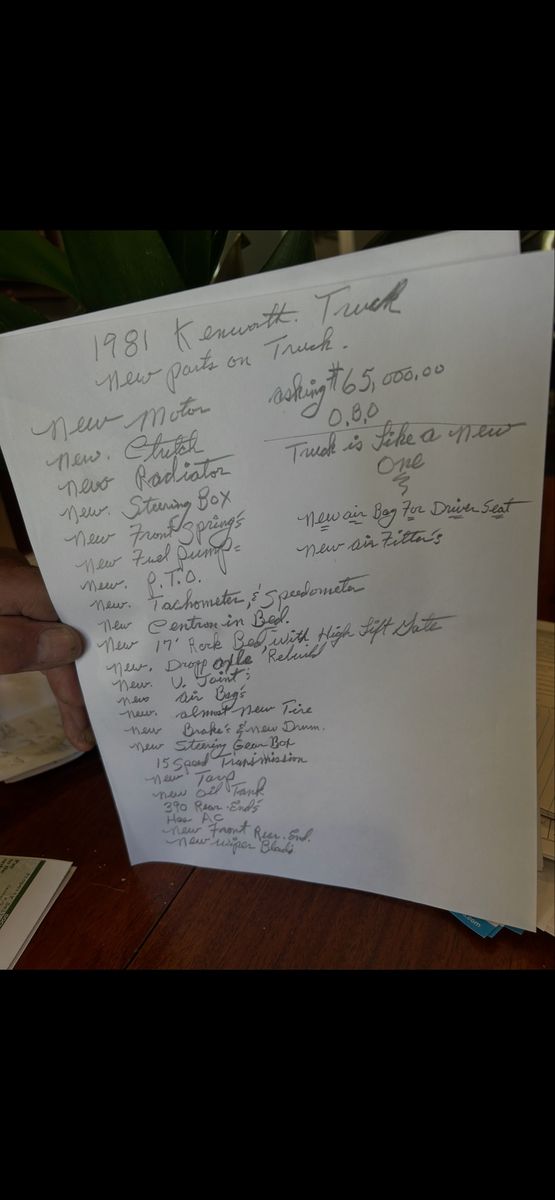 1981 Kenworth. Truck
New parts on Truck.
asking $65,000.00
O.B.O
Truck is Like a New
One
New Motor
New. Clutch
New Radiator
New. Steering Box
New Front Spring's
New Fuel Pump
New. P.T.O.
New. Tachometer, & Speedometer
New Centron in Bed.
New 17' Rock Bed, with High Lift Gate
New. Dropp axle Rebuild
New. U. Joint's
New air Bag's
New. almost New Tire
New Brake's & New Drum.
New Steering Gear Box
15 Speed Transmission
New Tarp
New Oil Tank
390 Rear-End's
Has AC
New Front Rear-End.
New wiper Blad's
New air Bag For Driver Seat
New air Filter's
.com